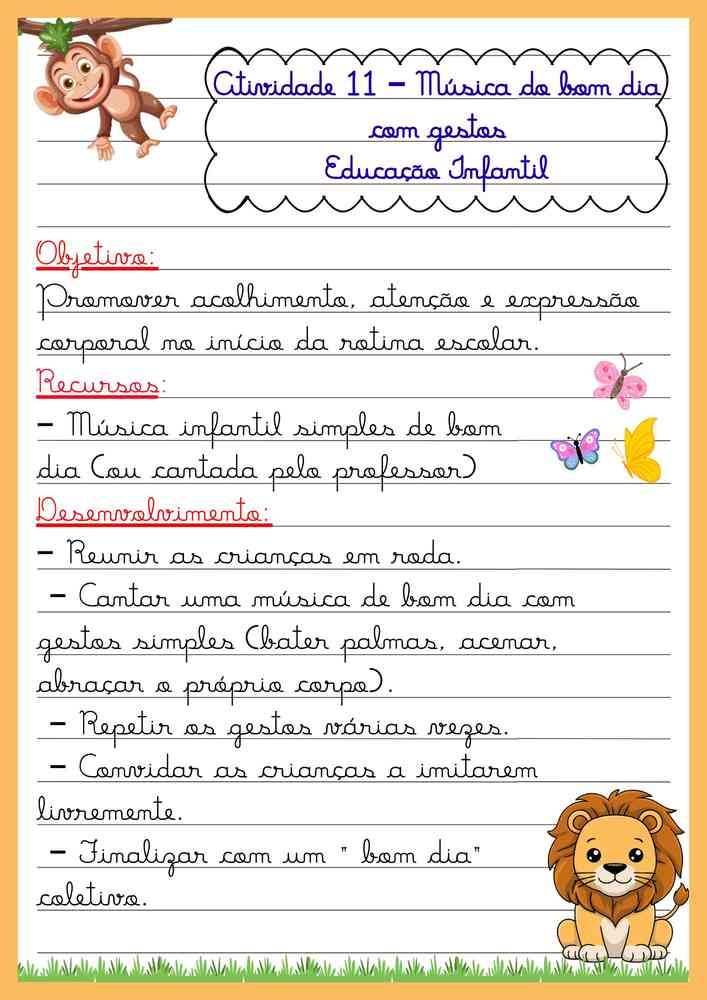 Atividade 11 - Música do bom dia
com gestos
Educação Infantil
Objetivo:
Promover acolhimento, atenção e expressão
corporal no início da rotina escolar.
Recursos:
- Música infantil simples de bom
dia (ou cantada pelo professor)
Desenvolvimento:
- Reunir as crianças em roda.
- Cantar uma música de bom dia com
gestos simples (bater palmas, acenar,
abraçar o próprio corpo).
- Repetir os gestos várias vezes.
- Convidar as crianças a imitarem
livremente.
- Finalizar com um " bom dia"
coletivo.